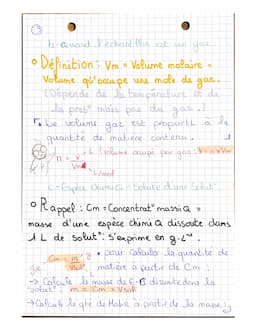 ③
b- Quand l'échantillon est un gaz.
○ Définition : Vm = Volume molaire =
Volume qu'occupe une mole de gaz.
(Dépends de la température et de
la press° mais pas du gaz.)
Le volume gaz est proport à la
quantité de matière contenu.
n = V/Vm L (volume occupé par gaz : V = n × Vm)
L/mol
c- Espèce chimiQ = Soluté d'une Solut°
○ Rappel : Cm = Concentrat° massiQ =
masse d'une espèce chimiQ dissoute dans
1 L de solut°. S'exprime en g.L⁻¹.
Cm = m/V g • pour Calculer la quantité de
g/L L matière à partir de Cm :
→ Calcule la masse de dissoute dans la
Solut° : m = Cm × Vsol
→ Calcule la qté de Matière à partir de la masse :